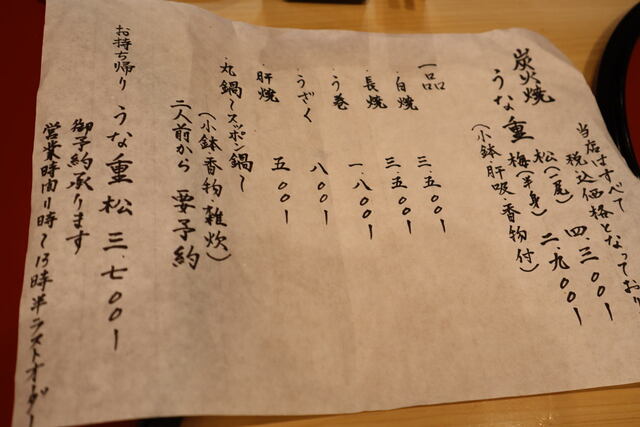 当店はすべて
税込価格となっており
炭火焼
うな重 松(一尾) 四、三〇〇ー
梅(半身) 二、九〇〇ー
(小鉢肝吸・香物付)
一品
・白焼 三、五〇〇ー
・長焼 三、五〇〇ー
・う巻 一、八〇〇ー
・うざく 八〇〇ー
・肝焼 五〇〇ー
・丸鍋〜スッポン鍋〜
(小鉢香物・雑炊)
二人前から 要予約
お持ち帰り うな重 松 三、七〇〇ー
御予約承ります
営業時間11時〜13時半ラストオーダー